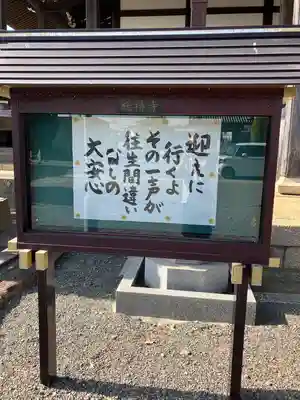 迎えに
行くよ
その一声が
往生間違い
なしの
大安心